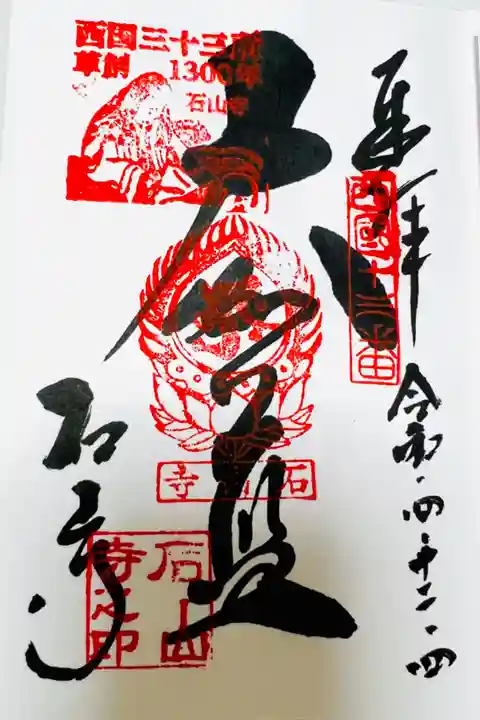 奉拝
西國十三番
令和・四・十二・四
西国三十三所
草創 1300年
石山寺
石山寺
石山寺
石山寺之印